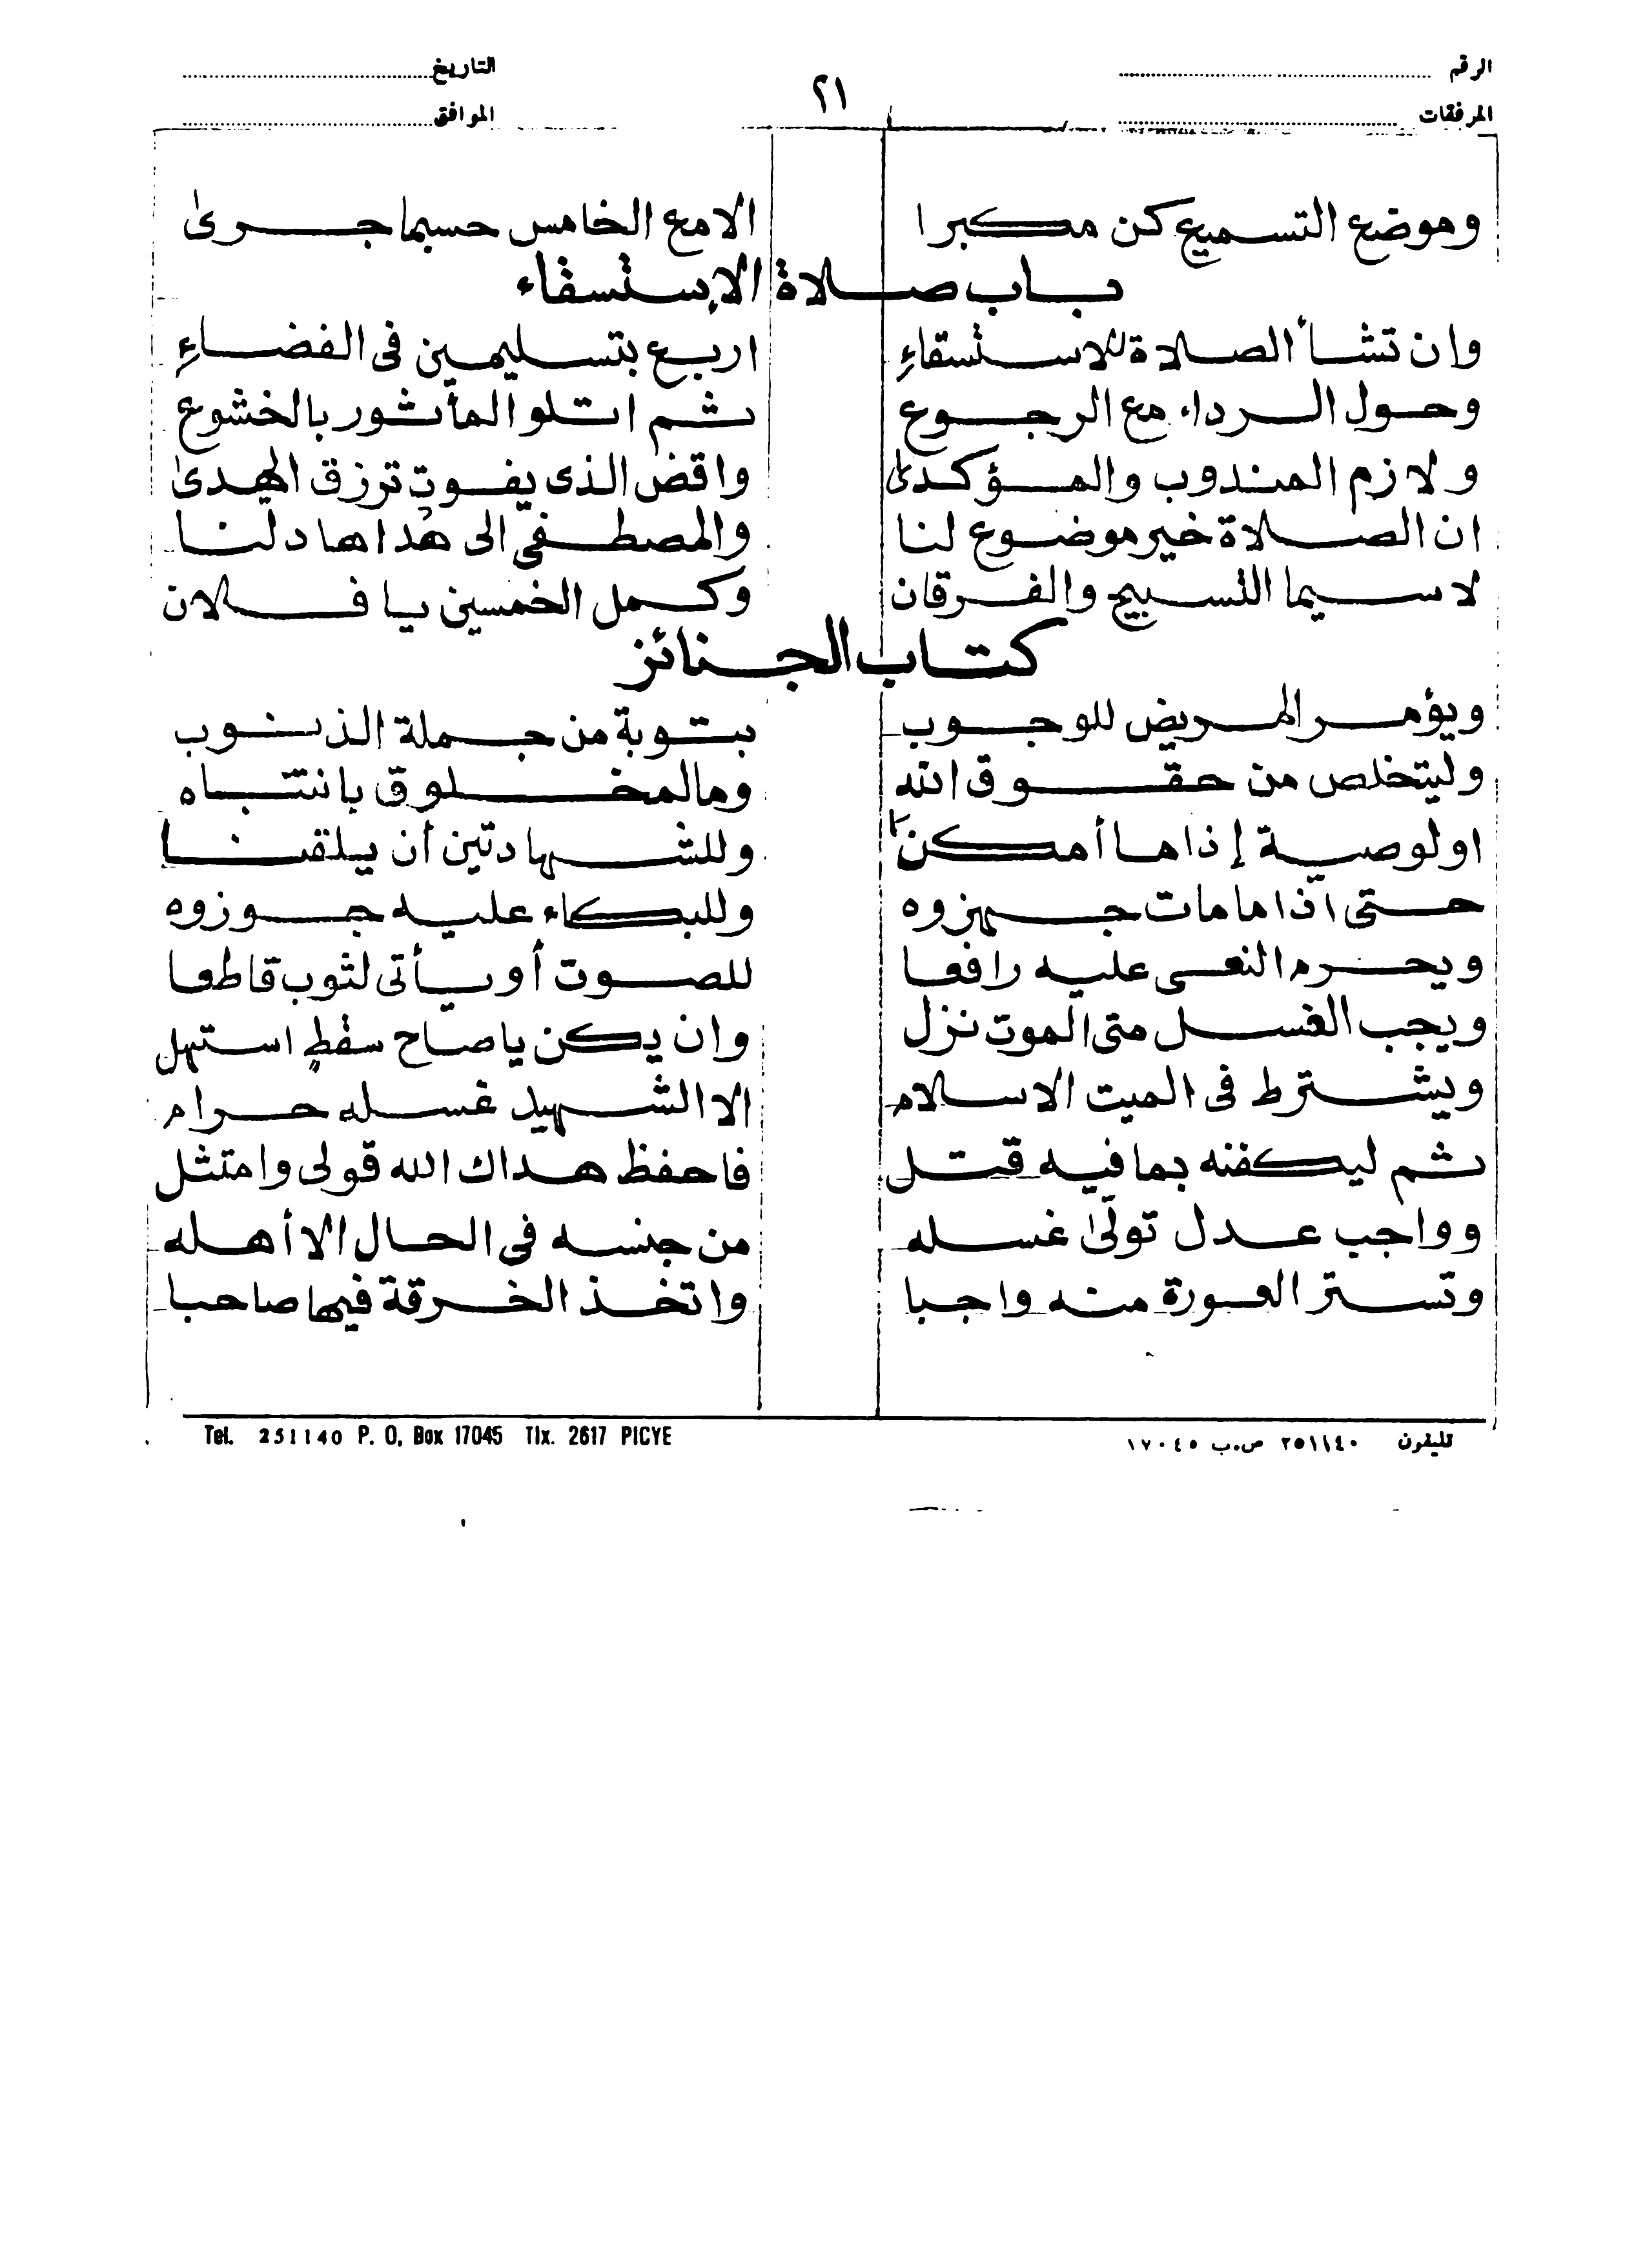 الرقم التاريخ
٢١
المرفقات الموافق
وموضع التسميع كن مكبرا الامع الخامس حسبما جرىٰ
باب صلاة الإستسقاء
وان تشأ الصلاة للاستسقاءِ اربع بتسليمين فى الفضاءِ
وحول الرداء مع الرجوع ثم اتلو المأثور بالخشوع
ولازم المندوب والمؤكدىٰ واقض الذى يفوت ترزق الهدىٰ
ان الصلاة خير موضوع لنا والمصطفى الى هُداها دلنا
لاسيما التسبيح والفرقان وكمل الخمسين يا فلان
كتاب الجنائز
ويؤمر المريض للوجوب بتوبة من جملة الذنوب
وليتخلص من حقوق الله ومالمخلوق بانتباه
اولوصية إذا ما أمكنا وللشهادتين أن يلقنا
حتى اذا مامات جهزوه وللبكاء عليه جوزوه
ويحرم النعى عليه رافعا للصوت أو يأتى لثوب قاطعا
ويجب الغسل متى الموت نزل وان يكن ياصاح سقطٍ استهل
ويشترط فى الميت الاسلام الا الشهيد غسله حرام
ثم ليكفنه بمافيه قتل فاحفظ هداك الله قولى وامتثل
وواجب عدل تولّىٰ غسله من جنسه فى الحال الا أهله
وتستر العورة منه واجبا واتخذ الخرقة فيها صاحبا
تليفون ٢٥١١٤٠ ص.ب ١٧٠٤٥ Tel. 251140 P. O, Box 17045 Tlx. 2617 PICYE